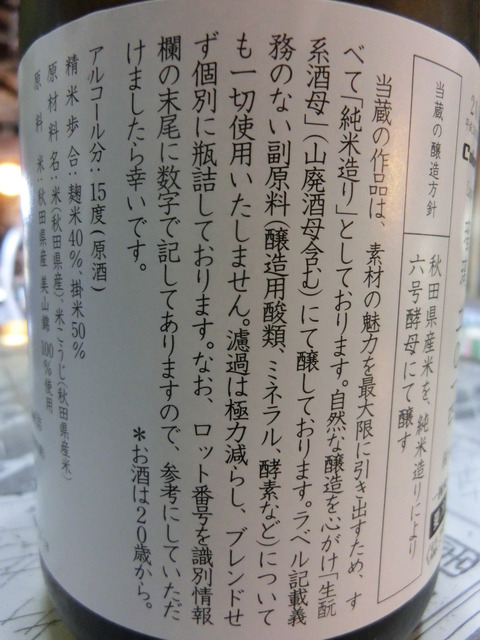 当蔵の醸造方針
秋田県産米を、純米造りにより
六号酵母にて醸す
当蔵の作品は、素材の魅力を最大限に引き出すため、す
べて「純米造り」としております。自然な醸造を心がけ「生酛
系酒母」(山廃酒母含む)にて醸しております。ラベル記載義
務のない副原料(醸造用酸類、ミネラル、酵素など)について
も一切使用いたしません。濾過は極力減らし、ブレンドせ
ず個別に瓶詰しております。なお、ロット番号を識別情報
欄の末尾に数字で記してありますので、参考にしていただ
けましたら幸いです。
*お酒は20歳から。
アルコール分:15度(原酒)
精米歩合:麹米40%、掛米50%
原材料名:米(秋田県産)、米こうじ(秋田県産米)
原料米:秋田県産 美山錦 100%使用